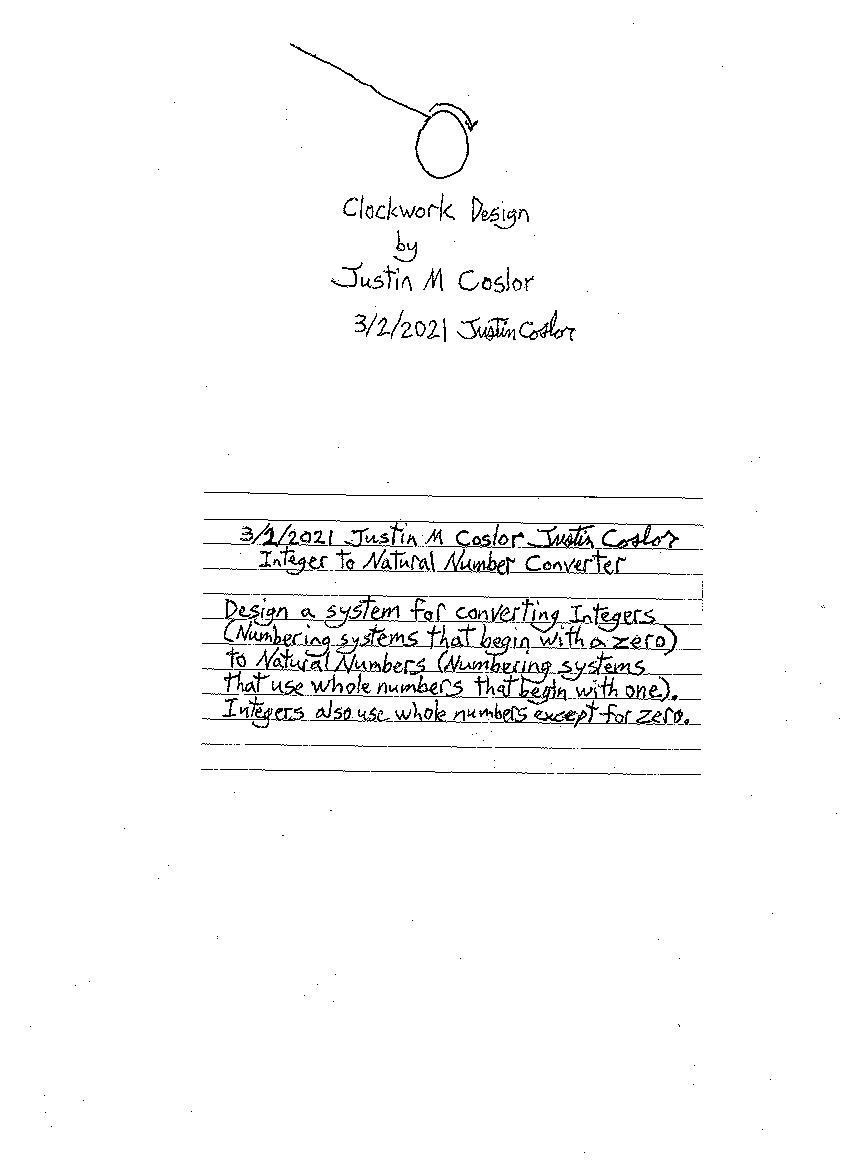 Clockwork Design
by
Justin M Coslor
3/2/2021 Justin Coslor
3/2/2021 Justin M Coslor Justin Coslor
Integer to Natural Number Converter
Design a system for converting Integers
(Numbering systems that begin with a zero)
to Natural Numbers (Numbering systems
that use whole numbers that begin with one).
Integers also use whole numbers except for zero.